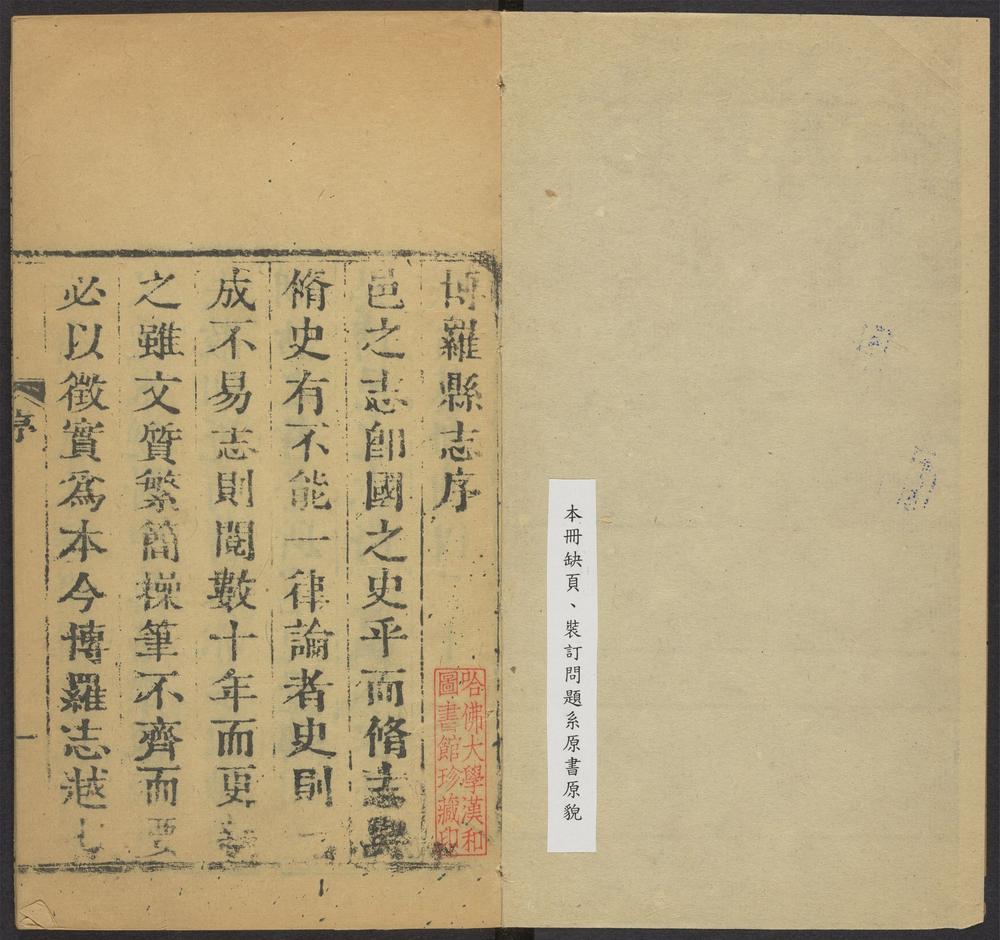 本冊缺頁、裝訂問題系原書原貌
博羅縣志序
邑之志即國之史乎而脩志與
脩史有不能一律論者史則一
成不易志則閱數十年而更
之雖文質繁簡操筆不齊而要
必以徵實爲本今博羅志越七
序
一
哈佛大學漢和
圖書館珍藏印